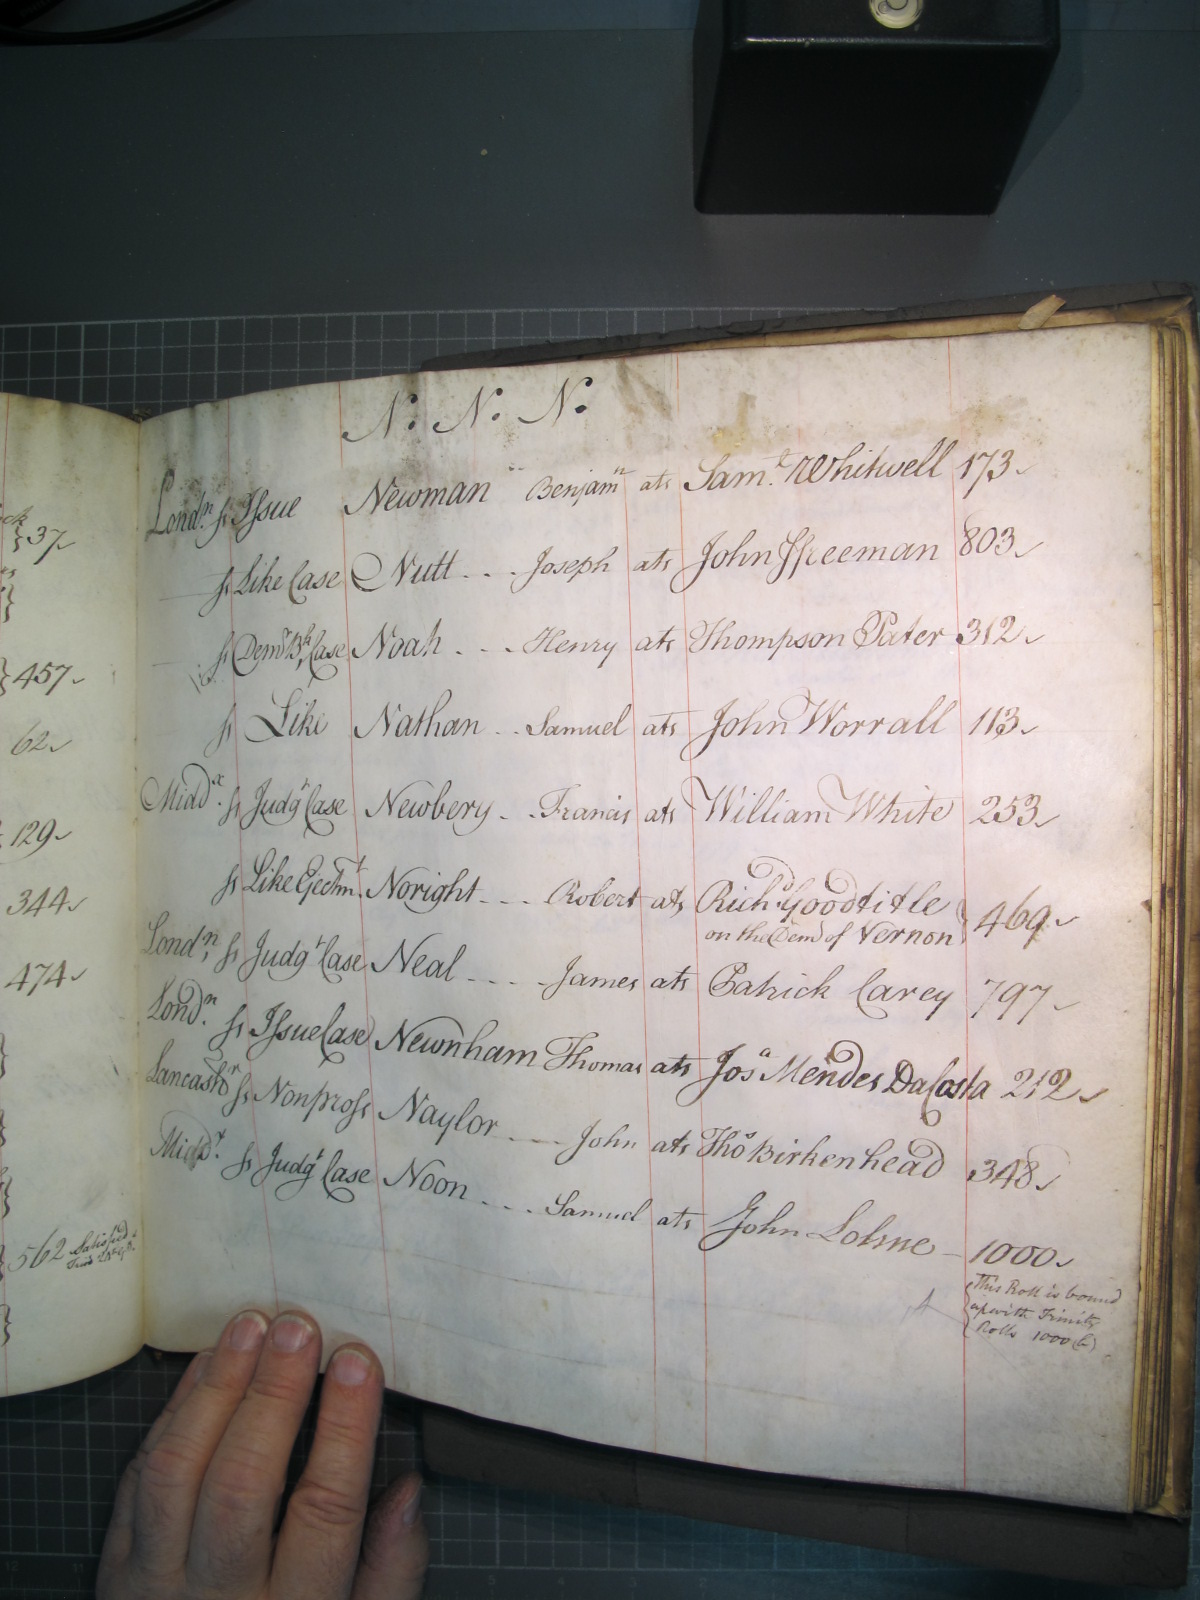 N: N: N:
Londn. ss Issue Newman Benjamn ats Saml. Whitwell 173
ss Like Case Nutt - - - Joseph ats John Ffreeman 803
ss Demr Bk Case Noah - - - Henry ats Thompson Pater 312
ss Like Nathan - - Samuel ats John Worrall 113
Middx. ss Judgt Case Newbery - - Francis ats William White 253
ss Like Ejectmt. Noright - - - Robert ats Richd. Goodtitle
on the Demd of Vernon 469
Londn, ss Judgt Case Neal - - - - James ats Patrick Carey 797
Londn. ss Issue Case Newnham Thomas ats Josa Mendes DaCosta 212
Lancastr ss Nonpross Naylor - - - John ats Thos Birkenhead 348
Middx. ss Judgt Case Noon - - - - Samuel ats John 1000
This Roll is bound
up with Trinity
Rolls 1000 (b)
37
457
62
129
344
474
562 Satisfied